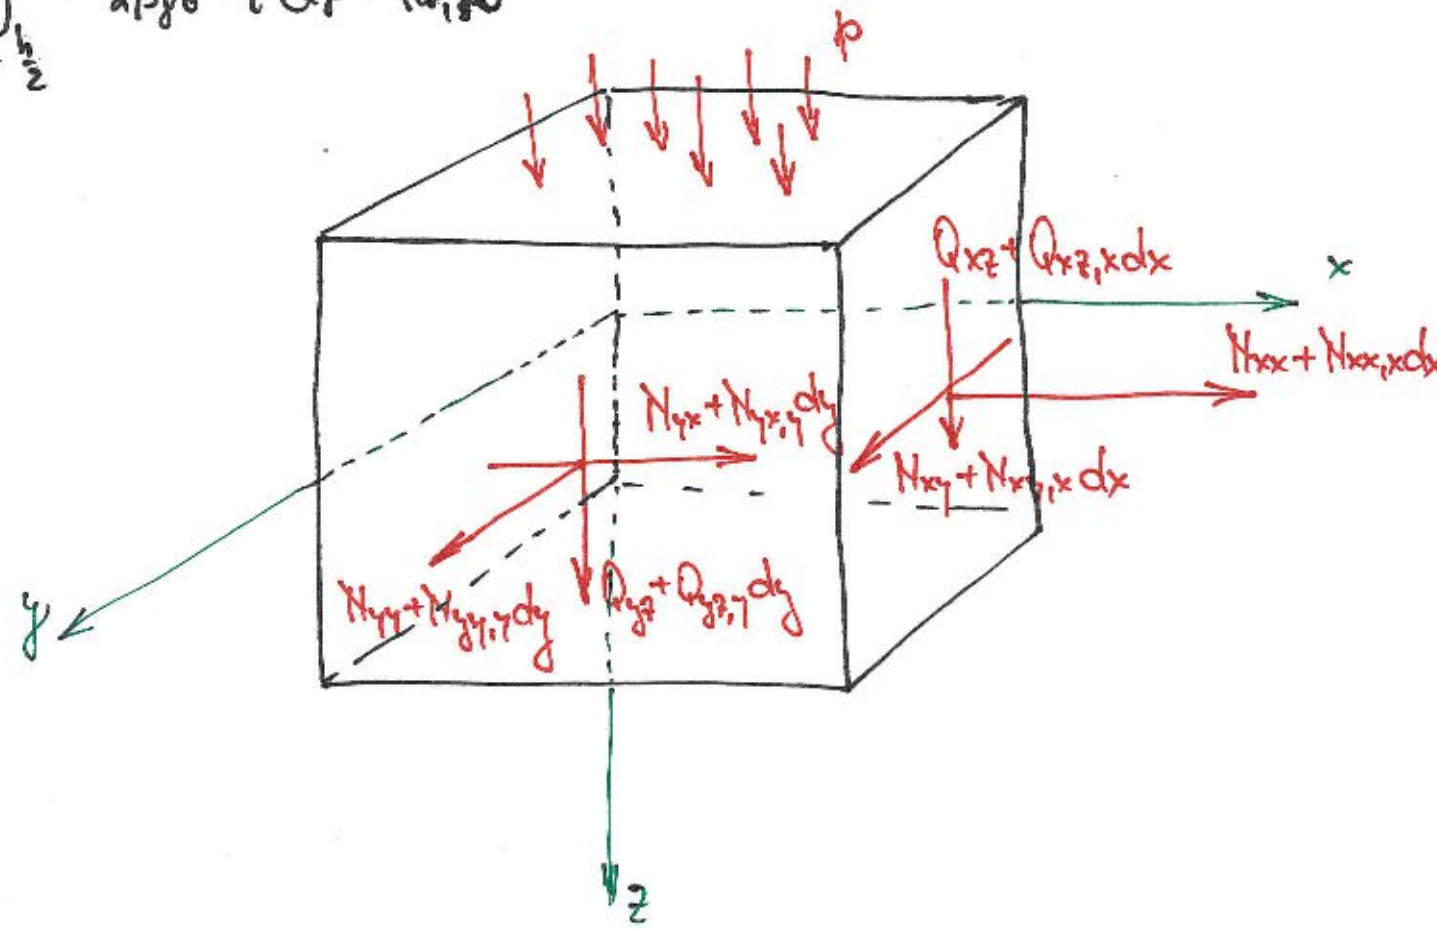 h/2
p
Qxz + Qxz,xdx
x
Nxx + Nxx,xdx
Nyx + Nyx,ydy
Nxy + Nxy,xdx
Nyy + Nyy,ydy
Qyz + Qyz,ydy
y
z